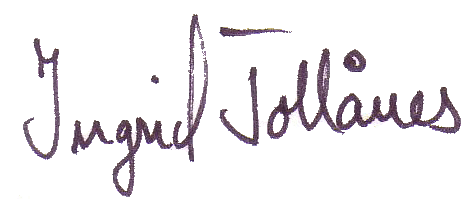 Ingrid Tollånes